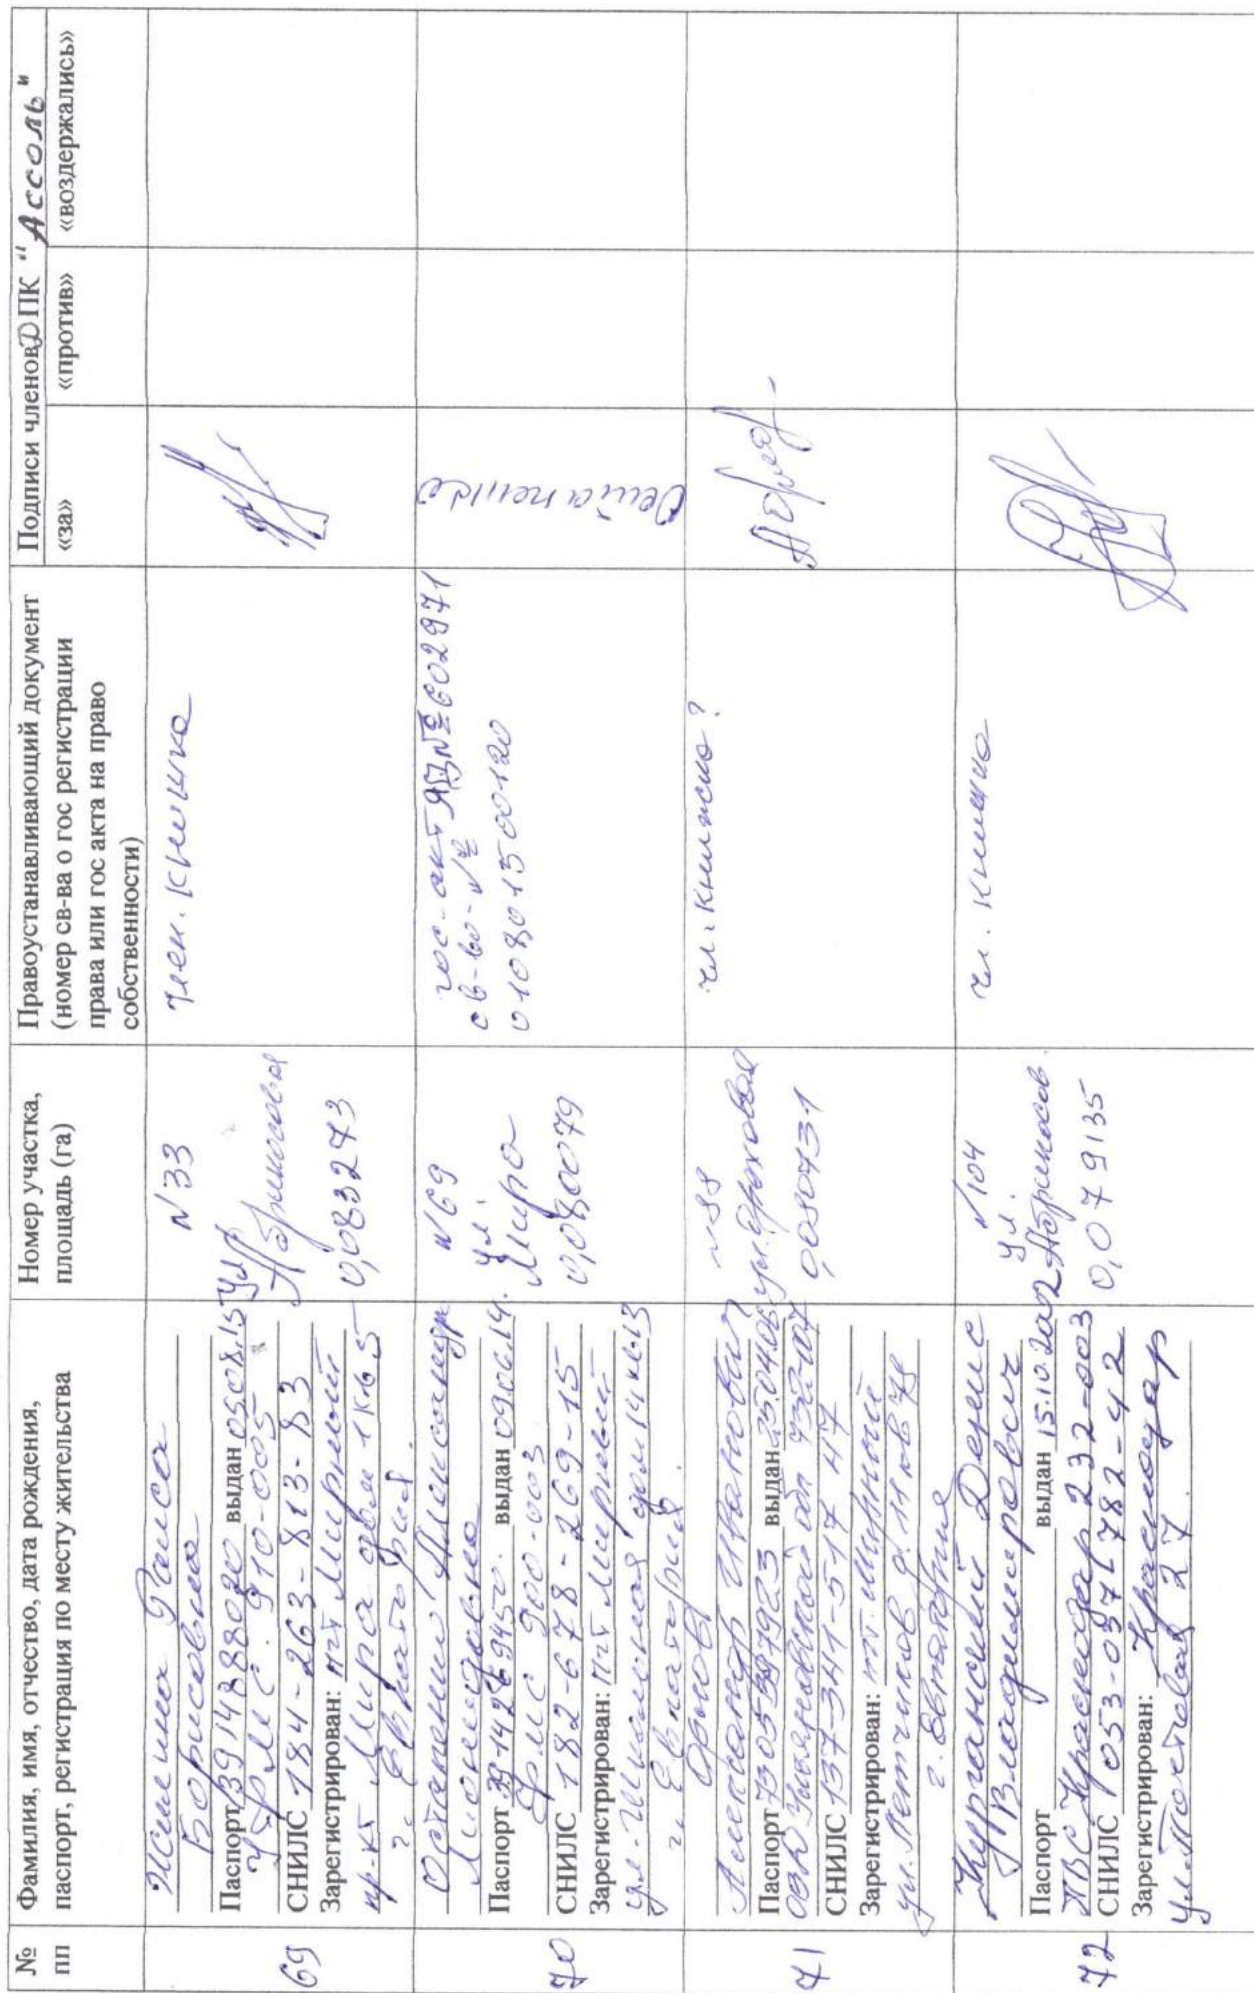 № пп
Фамилия, имя, отчество, дата рождения, паспорт, регистрация по месту жительства
Номер участка, площадь (га)
Правоустанавливающий документ (номер св-ва о гос регистрации права или гос акта на право собственности)
Подписи членов ДПК "Ассоль"
«за»
«против»
«воздержались»
69
Раиса
Борисовна
Паспорт 3914388080 выдан 05.08.15
УФМС. 910-005
СНИЛС 184-263-813-83
Зарегистрирован: пгт Мирный
пр-кт Мира дом 1 кв 5
г. Евпатория
N33
ул
Абрикосовая
0,083273
член. книжка
70
Остапенко Александра
Леонидовна
Паспорт 39-14269450. выдан 09.06.14.
Фмс 900-003
СНИЛС 182-678-269-15
Зарегистрирован: пгт Мирный
ул-Школьная дом 14 кв 13
г. Евпатория.
№69
ул.
Мира
0,080079
гос-акт ЯБ№602971
св-во-№
0108015 00120
Остапенко
71
Орлов
Александр Иванович
Паспорт выдан 25.04.06
ОВД Ульяновской обл 732-107
СНИЛС 137-341-517 47
Зарегистрирован: пгт. Мирный
ул. Летчиков д. 11 кв 78
г. Евпатория
ул.
0,080731
чл. книжка?
72
Курганский Денис
Владимирович
Паспорт выдан 15.10.2002
ПВС Краснодар 232-003
СНИЛС 053-037 782-42
Зарегистрирован: Краснодар
ул. Мостовая 27
№104
ул.
Абрикосов.
0,079135
чл. книжка